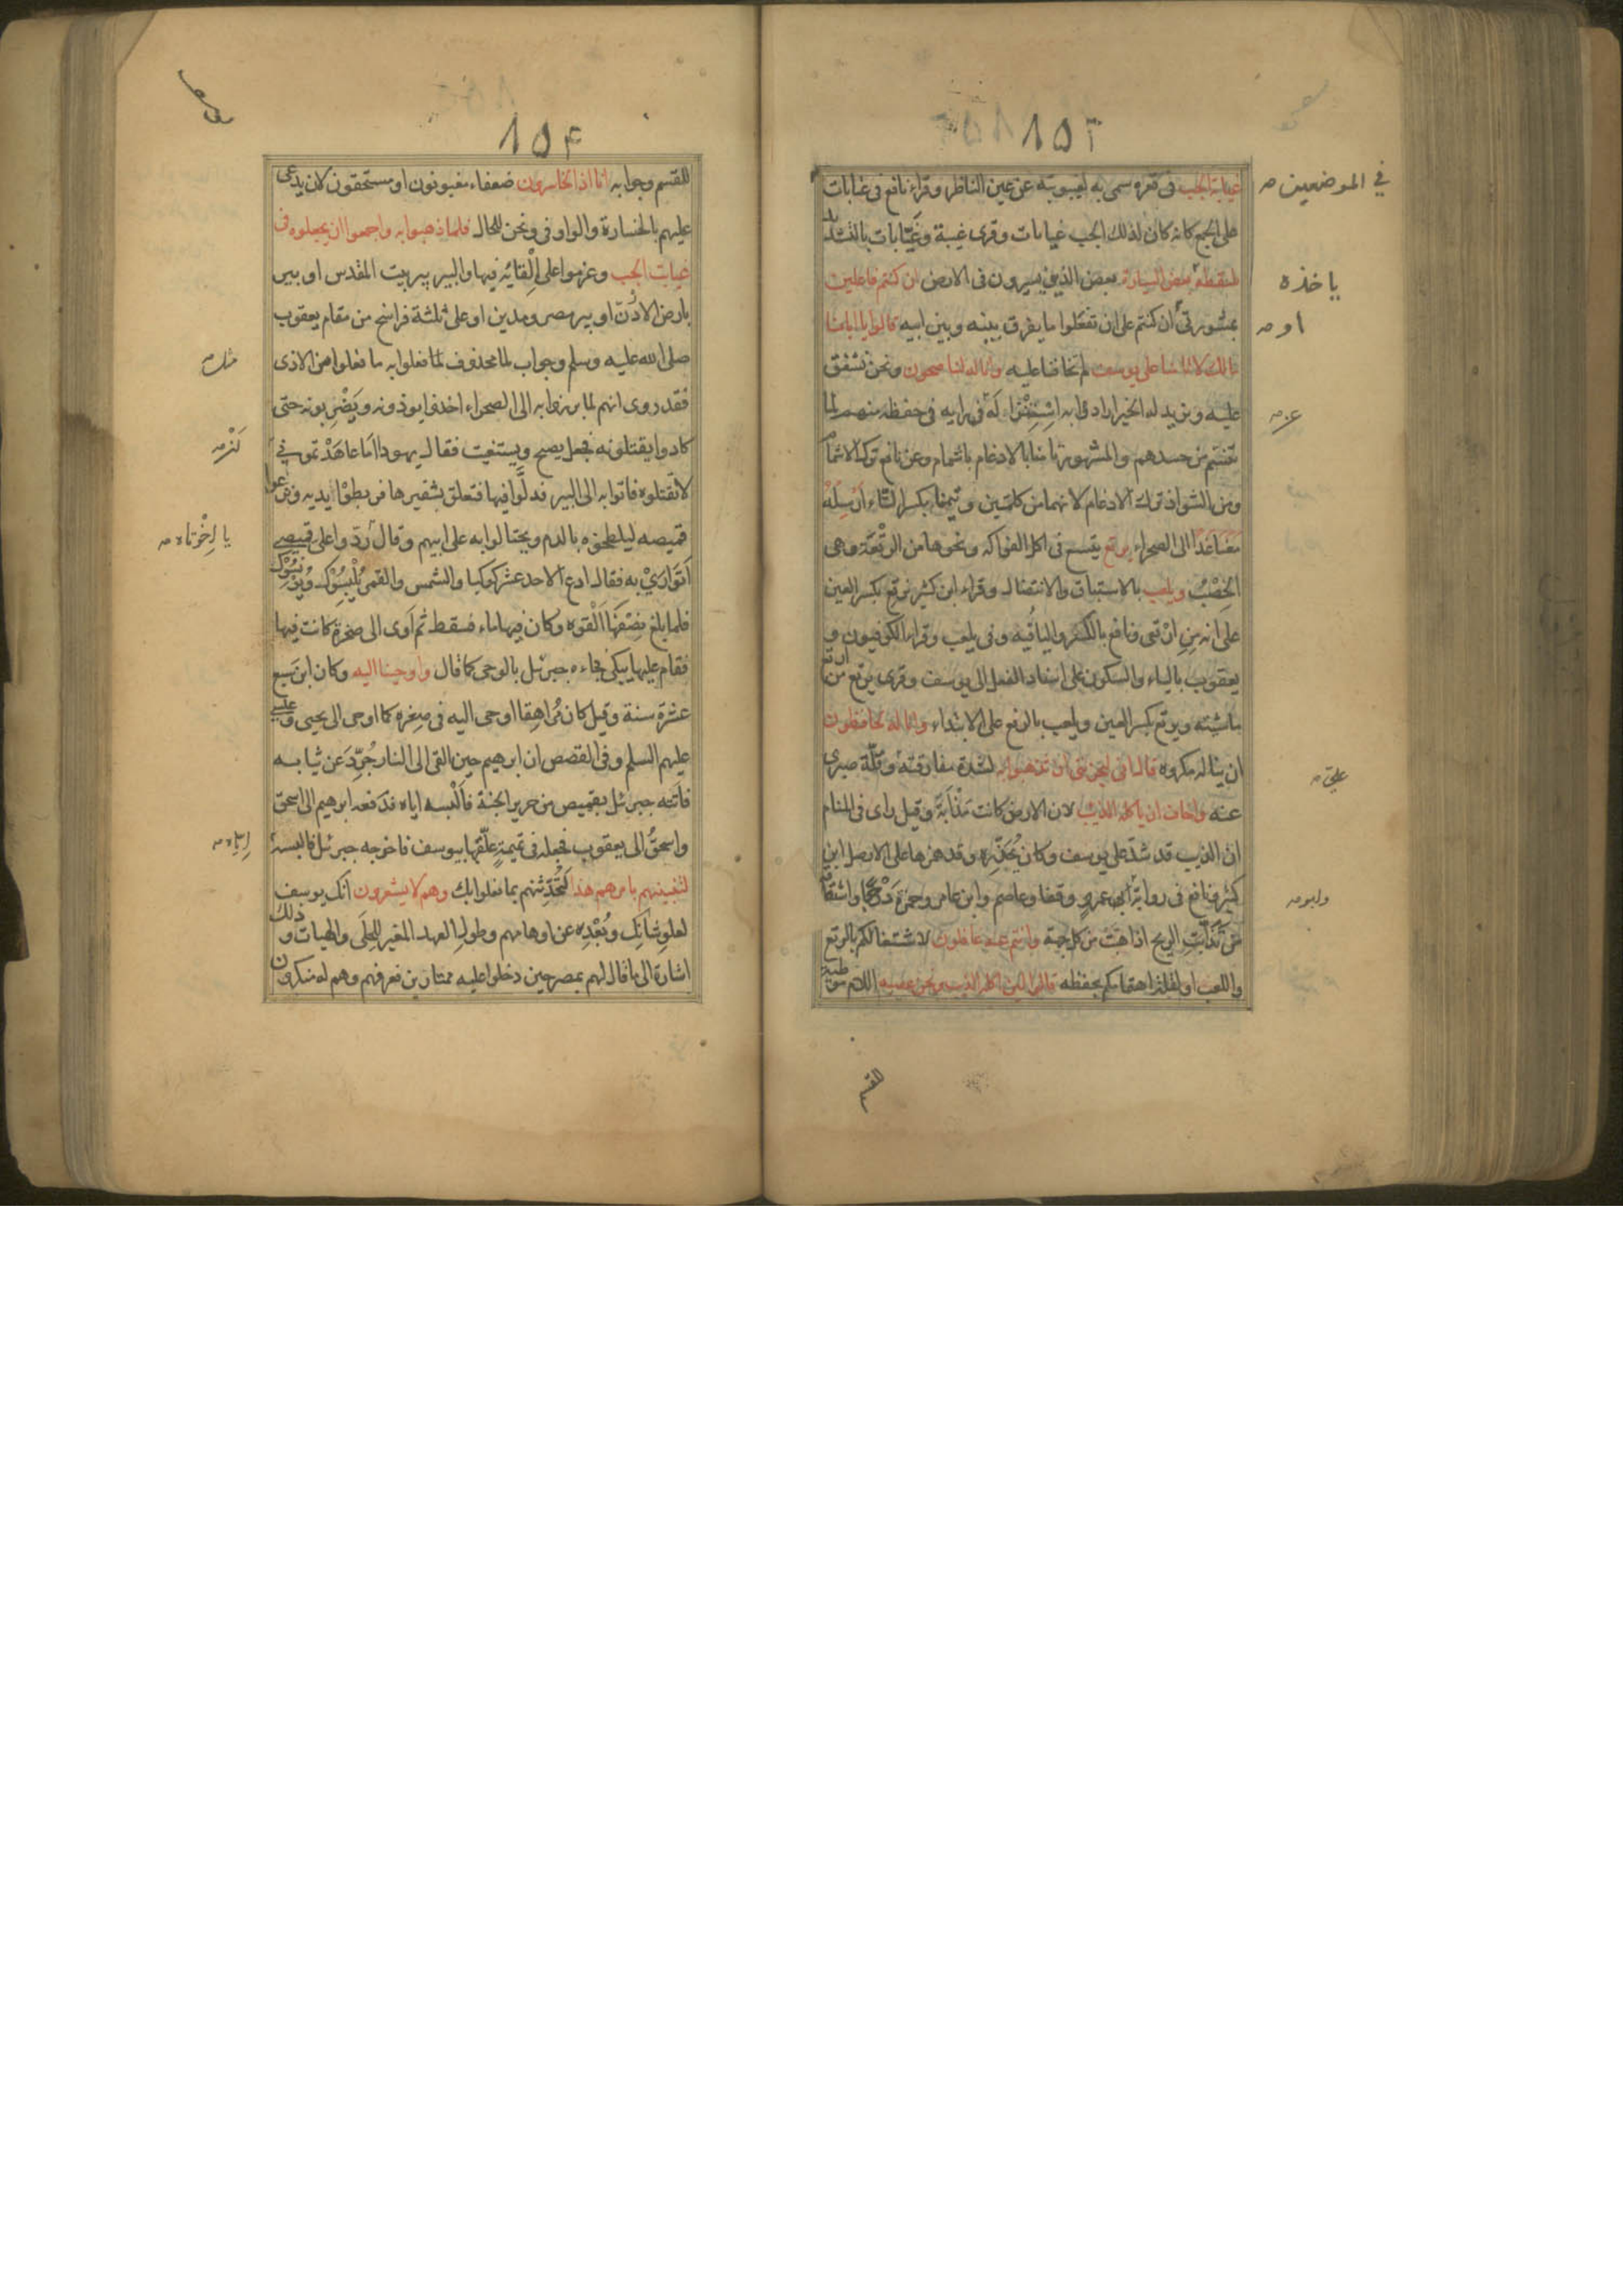 ١٥٣
غيابة الجب في قعره سمى به لغيبوبته عن عين الناظر وقراء نافع في غيابات
في الموضعين صح
على الجمع كانه كان لذلك الجب غيابات وقرى غيبة وغيّابات بالتشديد
يلتقطه بعض السيارة بعض الذين يسيرون في الارض ان كنتم فاعلين
ياخذه
بمشورتي أن كنتم على ان تفعلوا ما يفرق بينه وبين ابيه قالوا يا ابانا
او صح
مالك لا تامنا على يوسف لم تخافنا عليه وانا له لناصحون ونحن نشفق
عليه ونريد له الخير ارادوا به استنزاله عن رايه في حفظه منهم لما
عن صح
تنسّم من حسدهم والمشهور تامنا بالادغام باشمام وعن نافع ترك الاشمام
ومن الشواذ ترك الادغام لانهما من كلمتين وتيمنا بكسر التاء أرسله
معنا غدا الى الصحراء يرتع يتسع في اكل الفواكه ونحوها من الرتعة وهي
الخصب ويلعب بالاستباق والانتضال وقراء ابن كثير نرتع بكسر العين
على انه من ارتعى ونافع بالكسر والياء فيه وفي يلعب وقراء الكوفيون و
يعقوب بالياء والسكون على اسناد الفعل الى يوسف وقرى يرتع من ارتع
ماشيته ويرتع بكسر العين ويلعب بالرفع على الابتداء وانا له لحافظون
ان يناله مكروه قال انى ليحزننى ان تذهبوا به لشدة مفارقته وقلة صبرى
علىّ صح
عنه واخاف ان ياكله الذيب لان الارض كانت مذأبة وقيل راى في المنام
ان الذيب قد شدّ على يوسف وكان يحذّره وقد همزها على الاصل ابن
كثير ونافع في رواية ابى عمرو وقفا وعاصم وابن عامر وحمزة درجا واشتقاقه
وابو صح
من تذأبت الريح اذا هبت من كل جهة وانتم عنه غافلون لاشتغالكم بالرتع
واللعب او لقلة اهتمامكم بحفظه قالوا لئن اكله الذيب ونحن عصبة اللام موطئة
للقسم
١٥٤
للقسم وجوابه انا اذا لخاسرون ضعفاء مغبونون او مستحقون لان يدعى
عليهم بالخسارة والواو في ونحن للحال فلما ذهبوا به واجمعوا ان يجعلوه في
غيابت الجب وعزموا على القائه فيها والبير بير بيت المقدس او بير
بارض الاردن او بير مصر ومدين او على ثلثة فراسخ من مقام يعقوب
صلى الله عليه وسلم وجواب لما محذوف لما فعلوا به ما فعلوا من الاذى
مثل صح
فقد روى انهم لما برزوا به الى الصحراء اخذوا يوذونه ويضربونه حتى
كادوا يقتلونه فجعل يصيح ويستغيث فقال يهودا اما عاهدتموني
لا تقتلوه فاتوا به الى البير فدلّوا فيها فتعلق بشفيرها فربطوا يديه ونزعوا
قميصه ليلطخوه بالدم ويحتالوا به على ابيهم وقال ردّوا على قميصي
يا إخوتاه صح
أتوارى به فقالوا ادع الاحد عشر كوكبا والشمس والقمر يلبسوك ويونسوك
فلما بلغ نصفها القوه وكان فيها ماء فسقط ثم آوى الى صخرة كانت فيها
فقام عليها يبكى فجاءه جبرئل بالوحى كما قال واوحينا اليه وكان ابن سبع
عشرة سنة وقيل كان مراهقا اوحى اليه في صغره كما اوحى الى يحيى وعيسى
عليهم السلم وفي القصص ان ابرهيم حين القى الى النار جُرّد عن ثيابه
فاتته جبرئل بقميص من حرير الجنة فألبسه اياه فدفعه ابرهيم الى اسحق
واسحق الى يعقوب فجعله في تميمة علّقها بيوسف فاخرجه جبرئل فالبسه
اياه صح
لتنبينهم بامرهم هذا لتحدثنهم بما فعلوا بك وهم لا يشعرون انك يوسف
لعلو شانك وبُعده عن اوهامهم وطول العهد المغير للحلى والهيات وذلك
اشارة الى ما قال لهم بمصر حين دخلوا عليه ممتارين فعرفهم وهم له منكرون